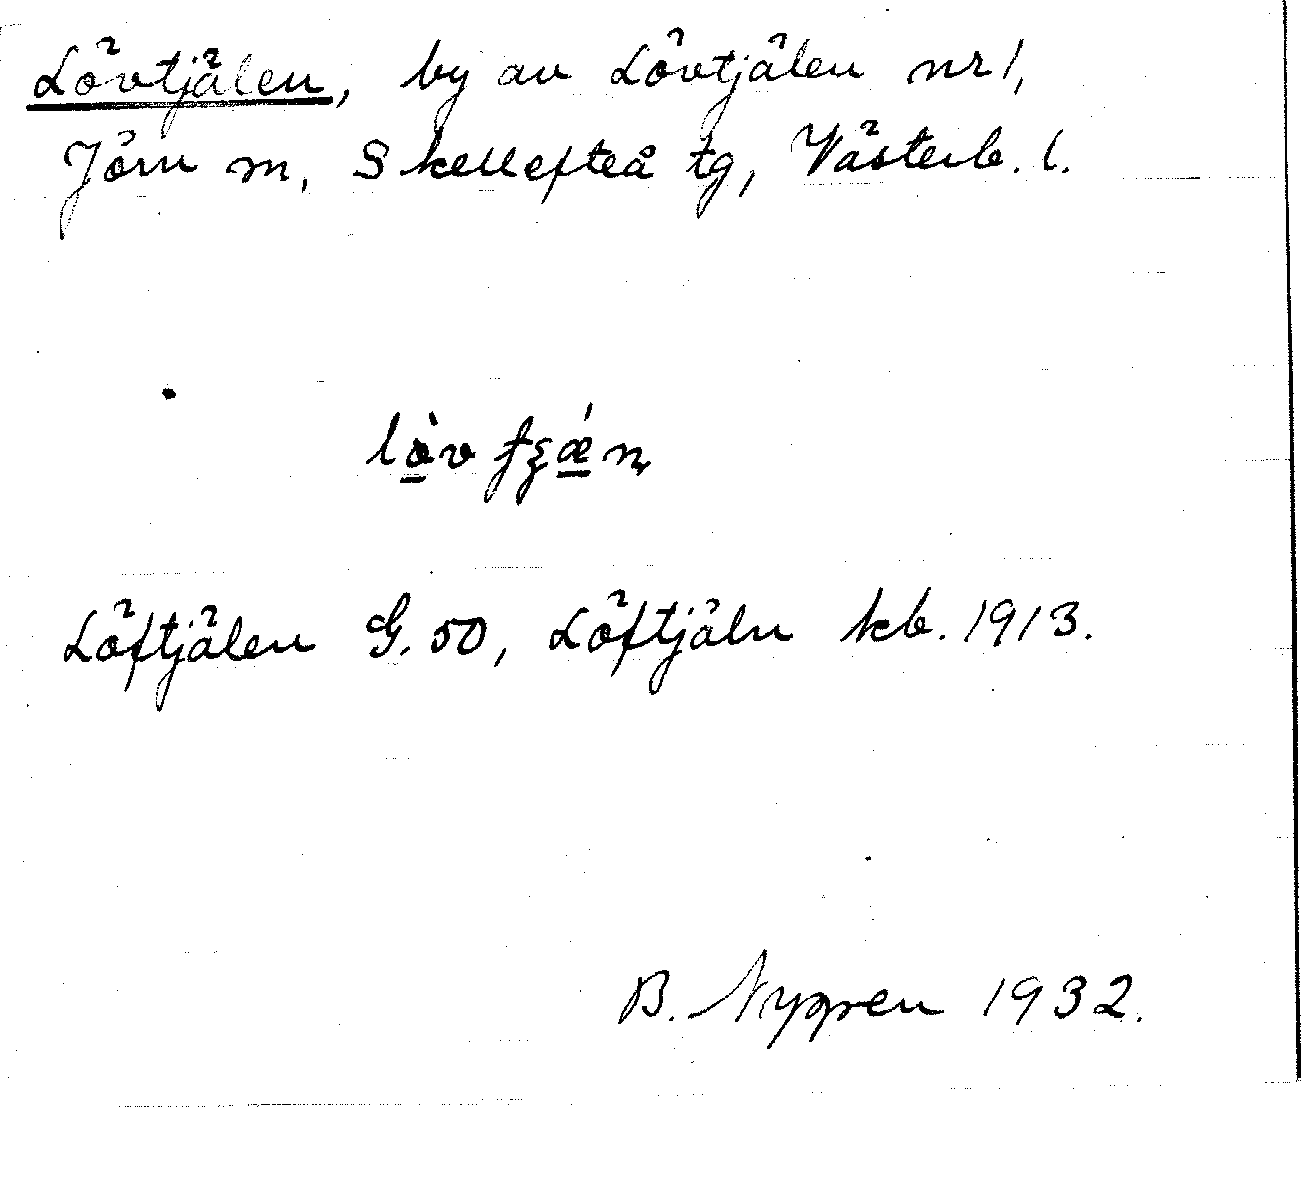 Lövtjälen, by av Lövtjälen nr 1,
Jörn sn, Skellefteå tg, Västerb. l.
Löftjälen G. 50, Löftjäln kb. 1913.
B. Nygren 1932.